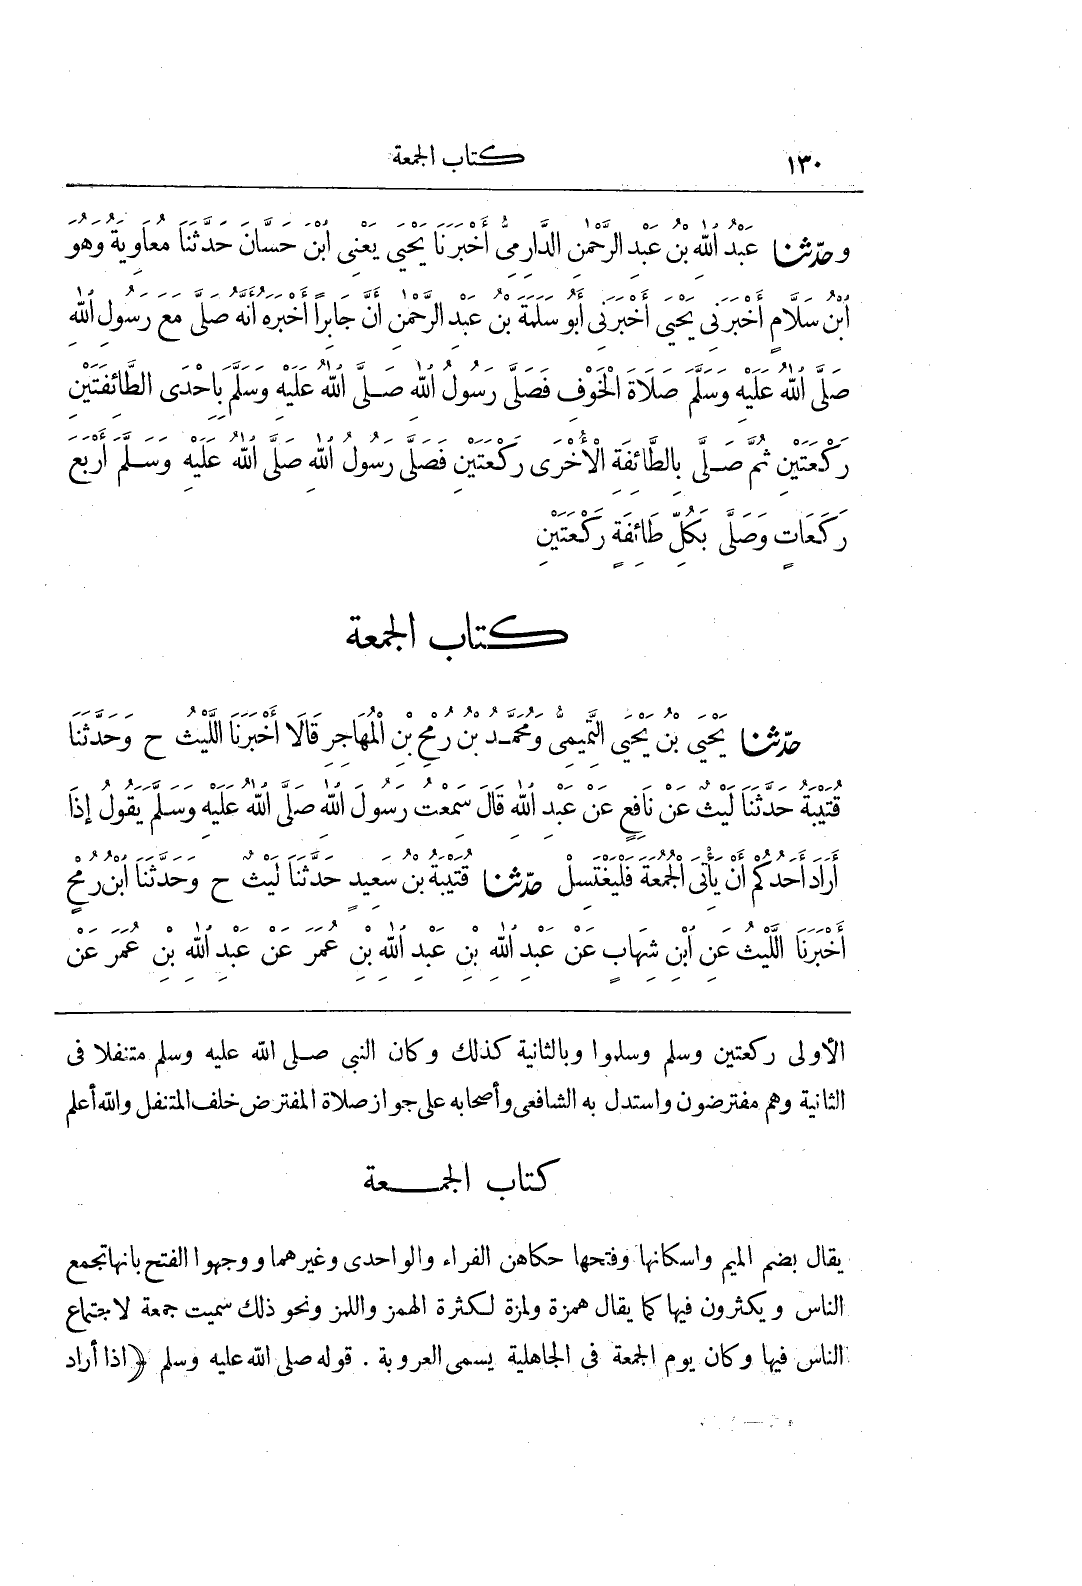 ١٣٠ كتاب الجمعة
و حدّثنا عَبْدُ اللهِ بْنُ عَبْدِ الرَّحْمٰنِ الدَّارِمِىُّ أَخْبَرَنَا يَحْيَى يَعْنِى ابْنَ حَسَّانَ حَدَّثَنَا مُعَاوِيَةُ وَهُوَ
ابْنُ سَلَّامٍ أَخْبَرَنِى يَحْيَى أَخْبَرَنِى أَبُو سَلَمَةَ بْنُ عَبْدِ الرَّحْمٰنِ أَنَّ جَابِراً أَخْبَرَهُ أَنَّهُ صَلَّى مَعَ رَسُولِ اللهِ
صَلَّى اللهُ عَلَيْهِ وَسَلَّمَ صَلَاةَ الْخَوْفِ فَصَلَّى رَسُولُ اللهِ صَلَّى اللهُ عَلَيْهِ وَسَلَّمَ بِإِحْدَى الطَّائِفَتَيْنِ
رَكْعَتَيْنِ ثُمَّ صَلَّى بِالطَّائِفَةِ الْأُخْرَى رَكْعَتَيْنِ فَصَلَّى رَسُولُ اللهِ صَلَّى اللهُ عَلَيْهِ وَسَلَّمَ أَرْبَعَ
رَكَعَاتٍ وَصَلَّى بِكُلِّ طَائِفَةٍ رَكْعَتَيْنِ
كتاب الجمعة
حدّثنا يَحْيَى بْنُ يَحْيَى التَّمِيمِىُّ وَمُحَمَّدُ بْنُ رُمْحِ بْنِ الْمُهَاجِرِ قَالَا أَخْبَرَنَا اللَّيْثُ ح وَحَدَّثَنَا
قُتَيْبَةُ حَدَّثَنَا لَيْثٌ عَنْ نَافِعٍ عَنْ عَبْدِ اللهِ قَالَ سَمِعْتُ رَسُولَ اللهِ صَلَّى اللهُ عَلَيْهِ وَسَلَّمَ يَقُولُ إِذَا
أَرَادَ أَحَدُكُمْ أَنْ يَأْتِىَ الْجُمُعَةَ فَلْيَغْتَسِلْ حدّثنا قُتَيْبَةُ بْنُ سَعِيدٍ حَدَّثَنَا لَيْثٌ ح وَحَدَّثَنَا ابْنُ رُمْحٍ
أَخْبَرَنَا اللَّيْثُ عَنِ ابْنِ شِهَابٍ عَنْ عَبْدِ اللهِ بْنِ عَبْدِ اللهِ بْنِ عُمَرَ عَنْ عَبْدِ اللهِ بْنِ عُمَرَ عَنْ
الأولى ركعتين وسلم وسلموا وبالثانية كذلك وكان النبى صلى الله عليه وسلم متنفلا فى
الثانية وهم مفترضون واستدل به الشافعى وأصحابه على جواز صلاة المفترض خلف المتنفل والله أعلم
كتاب الجمعة
يقال بضم الميم واسكانها وفتحها حكاهن الفراء والواحدى وغيرهما ووجهوا الفتح بانها تجمع
الناس ويكثرون فيها كما يقال همزة ولمزة لكثرة الهمز واللمز ونحو ذلك سميت جمعة لاجتماع
الناس فيها وكان يوم الجمعة فى الجاهلية يسمى العروبة . قوله صلى الله عليه وسلم ﴿اذا أراد